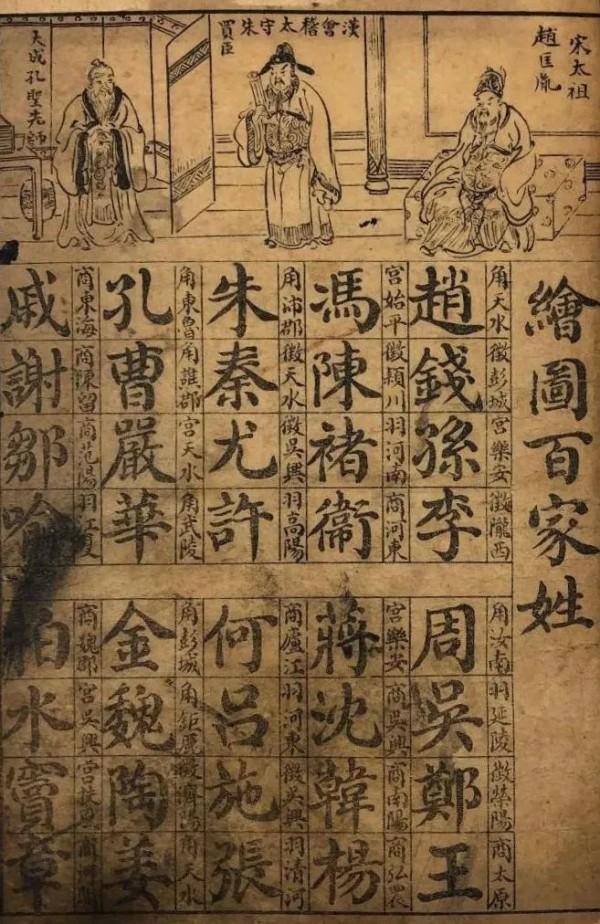 宋太祖
趙匡胤
漢會稽太守朱
買臣
大成孔聖先師
繪圖百家姓
角天水 徵彭城 宮樂安 徵隴西
趙錢孫李
宮始平 徵穎川 羽河南 商河東
馮陳褚衛
角沛郡 徵天水 徵吳興 羽高陽
朱秦尤許
角東魯 角譙郡 宮天水 角武陵
孔曹嚴華
商東海 商陳留 商范陽 羽江夏
戚謝鄒喻
角汝南 羽延陵 徵滎陽 商太原
周吳鄭王
宮樂安 商吳興 商南陽 商弘農
蔣沈韓楊
商廬江 羽河東 徵吳興 羽清河
何呂施張
角彭城 角鉅鹿 徵濟陽 角天水
金魏陶姜
商魏郡 宮吳興 宮扶風
柏水竇章